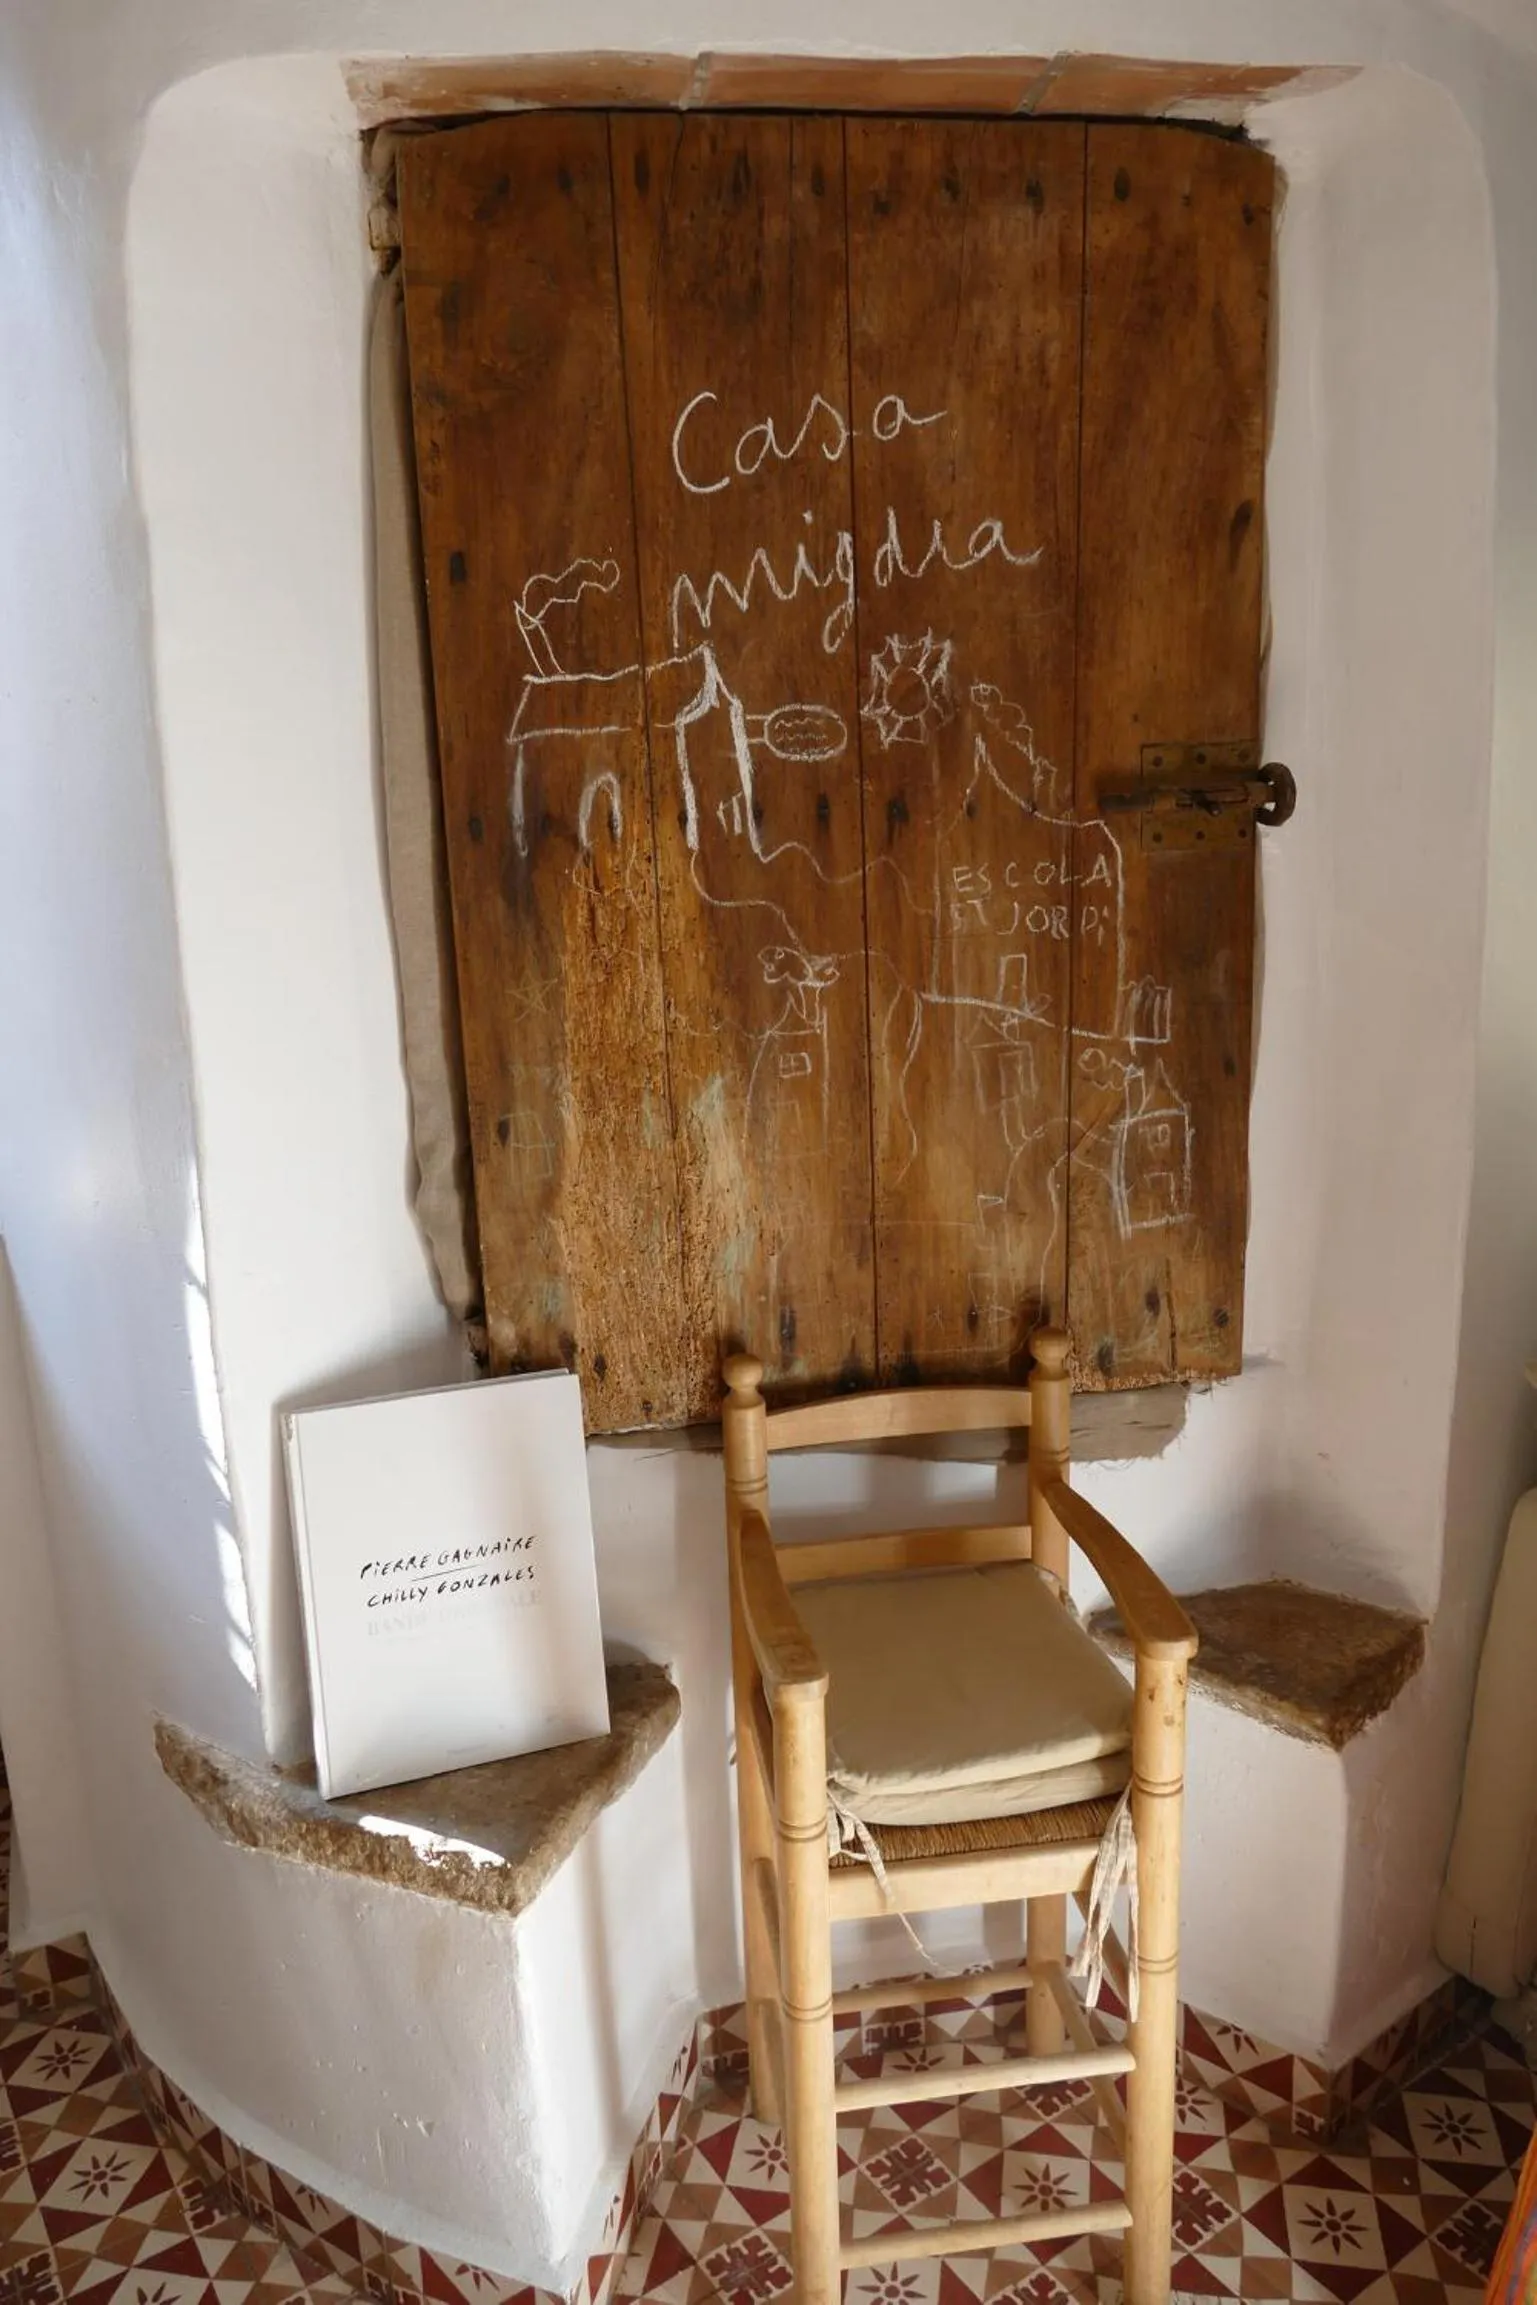 Casa
migdia
ESCOLA
ST JORDi
PiERRE GAGNAiRE
CHiLLY GONZALES
BANDE ORIGINALE